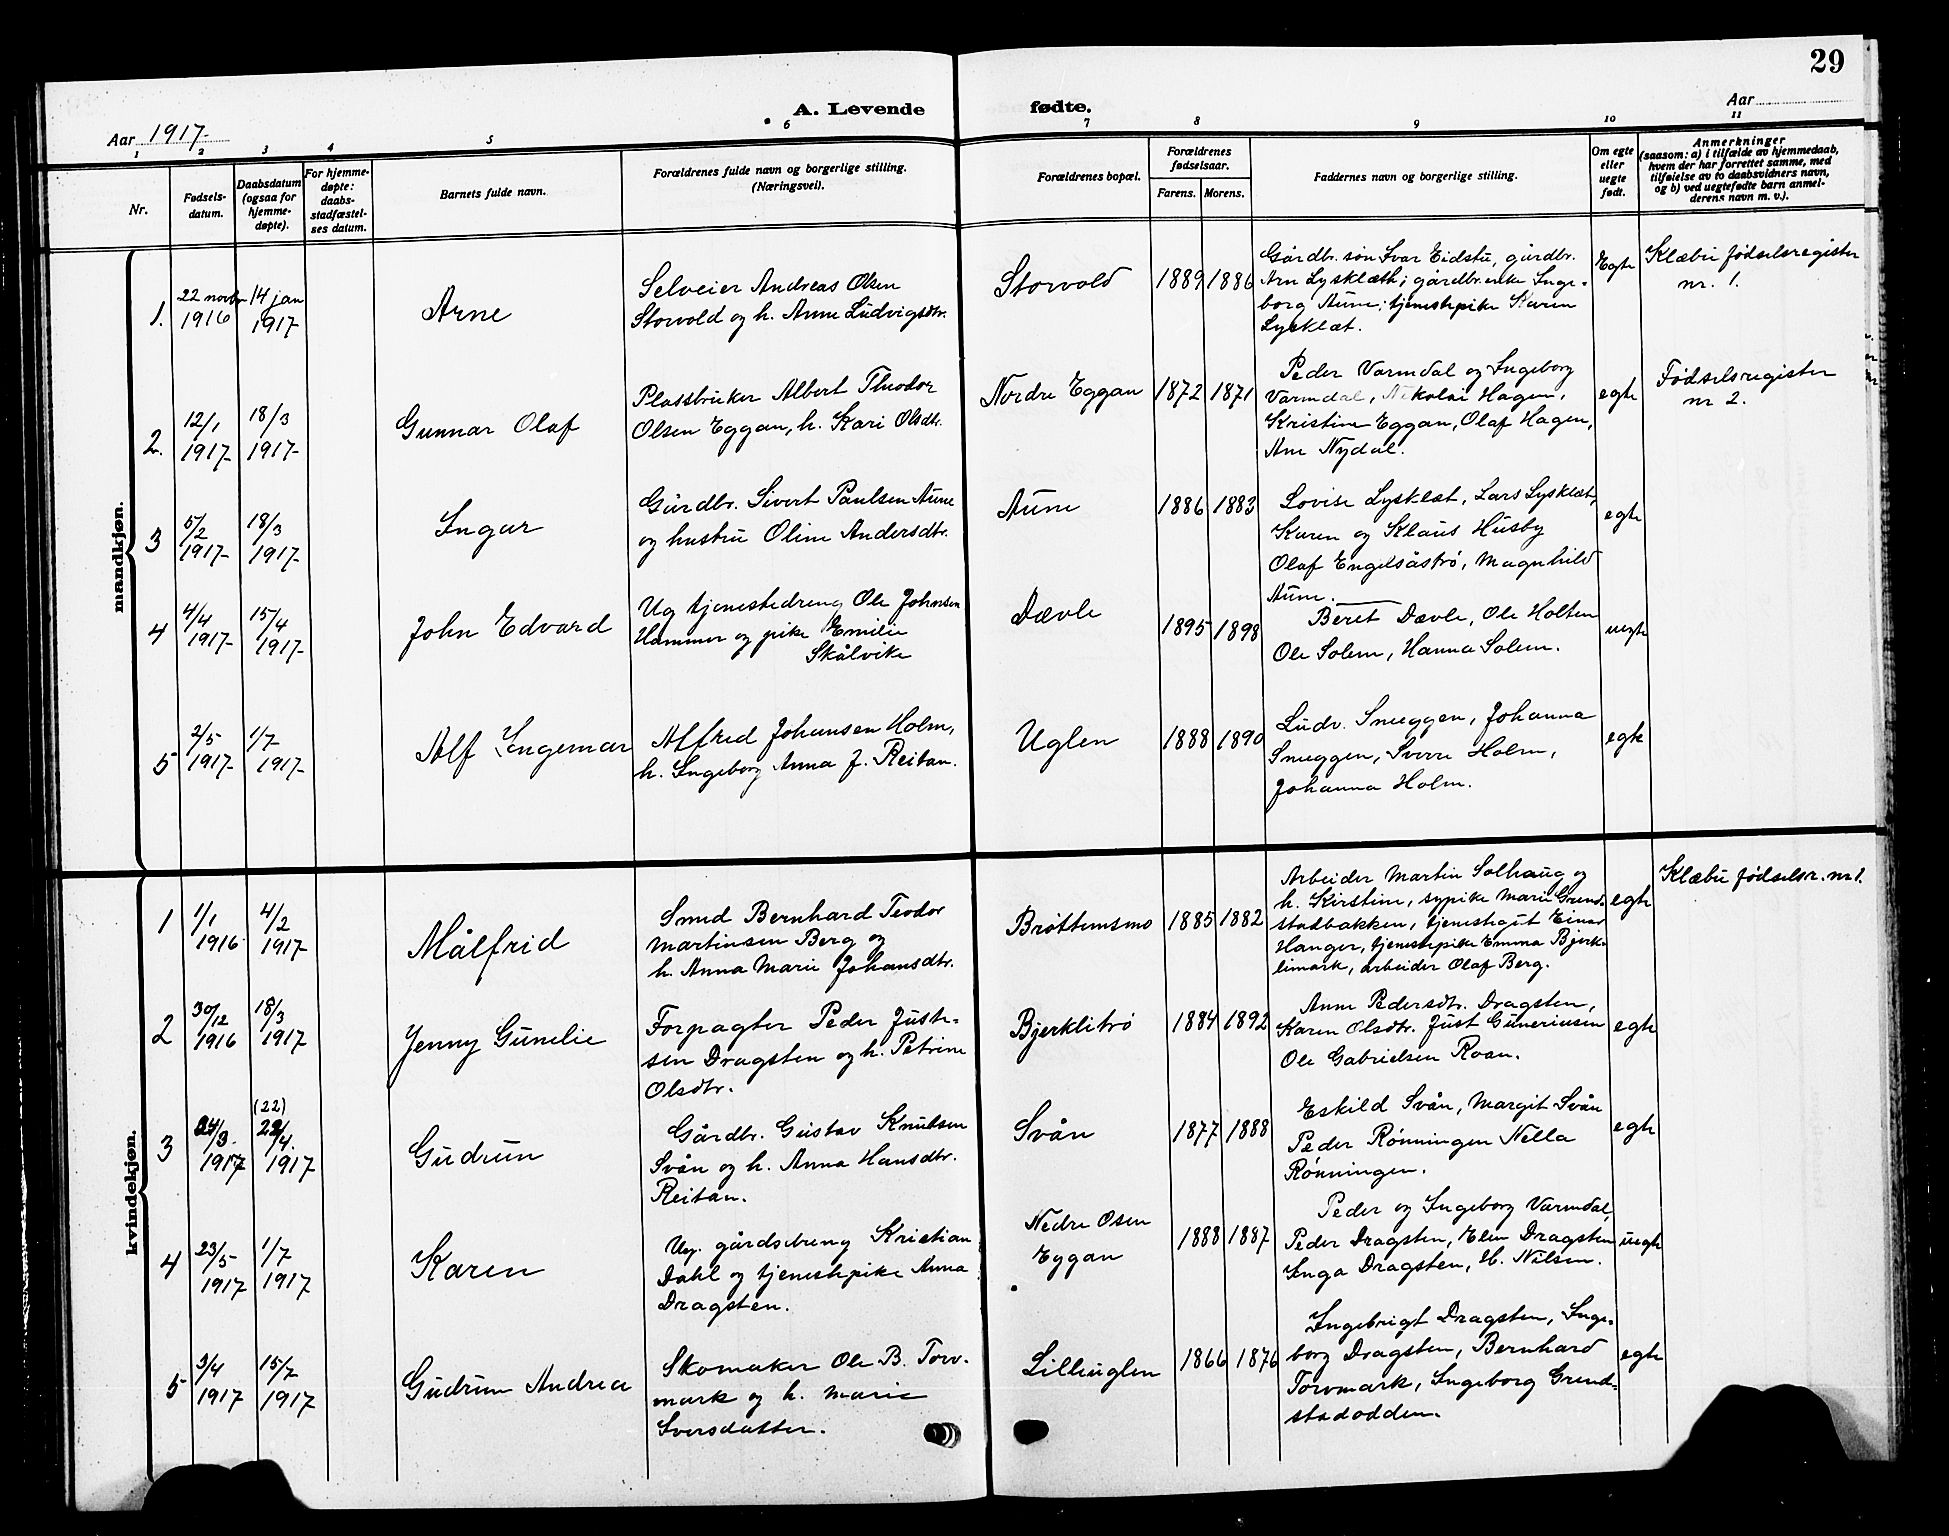 29
A. Levende fødte.
Aar 1917-
Aar
1 2 3 4 5 6 7 8 9 10 11
Nr.
Fødsels-
datum.
Daabsdatum
(ogsaa for
hjemme-
døpte).
For hjemme-
døpte:
daabs-
stadfæstel-
ses datum.
Barnets fulde navn.
Forældrenes fulde navn og borgerlige stilling.
(Næringsvei).
Forældrenes bopæl.
Forældrenes
fødselsaar.
Farens. Morens.
Faddernes navn og borgerlige stilling.
Om egte
eller
uegte
født.
Anmerkninger
(saasom: a) i tilfælde av hjemmedaab,
hvem der har forrettet samme, med
tilføielse av to daabsvidners navn,
og b) ved uegtefødte barn anmel-
derens navn m. v.).
mandkjøn.
1.
22 novbr
1916
14 jan
1917
Arne
Selveier Andreas Olsen
Storvold og h. Anne Ludvigsdtr.
Storvold
1889 1886
Gårdbr. søn Ivar Eidstu, gårdbr.
Arn Lysklæth; gårdbr. enke Inge-
borg Aune; tjenestepike Karen
Lysklæt.
Egte
Klæbu fødselsregister
nr. 1.
2.
12/1
1917-
18/3
1917-
Gunnar Olaf
Plassbruker Albert Theodor
Olsen Eggan, h. Kari Olsdtr.
Nordre Eggan
1872 1871
Peder Varmdal og Ingeborg
Varmdal, Nikolai Hagen,
Kristine Eggan, Olaf Hagen,
Ane Nydal.
egte
Fødselsregister
nr 2.
3
5/2
1917-
18/3
1917-
Ingar
Gårdbr. Sivert Paulsen Aune
og hustru Oline Andersdtr.
Aune
1886 1883
Lovise Lysklæt, Lars Lysklæt,
Karen og Klaus Husby
Olaf Engelsåstrø, Magnhild
Aune.
egte
4
4/4
1917-
15/4
1917-
John Edvard
Ug tjenestedreng Ole Johnsen
Hammer og pike Emilie
Skålvike
Dævle
1895 1898
Beret Dævle, Ole Holten
Ole Solem, Hanna Solem.
uegte
5
2/5
1917-
1/7
1917-
Alf Ingemar
Alfred Johansen Holm,
h. Ingeborg Anna J. Reitan.
Uglen
1888 1890
Ludv. Snuggen, Johanna
Snuggen, Sverre Holm,
Johanna Holm.
egte
kvindekjøn.
1
1/1
1916
4/2
1917-
Målfrid
Smed Bernhard Teodor
Martinsen Berg og
h. Anna Marie Johansdtr.
Brøttemsmo
1885 1882
Arbeider Martin Solhaug og
h. Kirstine, sypike Marie Grend-
stadbakken, tjenestegut Einar
Hanger, tjenestepike Emma Bjerk-
limark, arbeider Olaf Berg.
egte
Klæbu fødselsr. nr 1.
2
30/12
1916
18/3
1917
Jenny Gunelie
Forpagter Peder Juste-
sen Dragsten og h. Petrine
Olsdtr.
Bjerklitrø
1884 1892
Anne Pedersdtr. Dragsten,
Karen Olsdtr. Just Guneriusen
Ole Gabrielsen Roan.
egte
3
24/3.
1917
(22)
22/4.
1917
Gudrun
Gårdbr. Gustav Knutsen
Svån og h. Anna Hansdtr.
Reitan.
Svån
1877 1888
Eskild Svån, Margit Svån
Peder Rønningen Nella
Rønningen.
egte
4
23/5
1917
1/7
1917
Karen
Ug. gårdsdreng Kristian
Dahl og tjenestepike Anna
Dragsten.
Nedre Osen
Eggan
1888 1887
Peder og Ingeborg Varmdal,
Peder Dragsten, Elen Dragsten
Inga Dragsten, H. Nilsen.
uegte
5
3/4
1917
15/7
1917
Gudrun Andrea
Skomaker Ole B. Torv-
mark og h. Marie
Iversdatter.
Lilleuglen
1866 1876
Ingebrigt Dragsten, Inge-
borg Dragsten, Bernhard
Torvmark, Ingeborg Grend-
stadodden.
egte